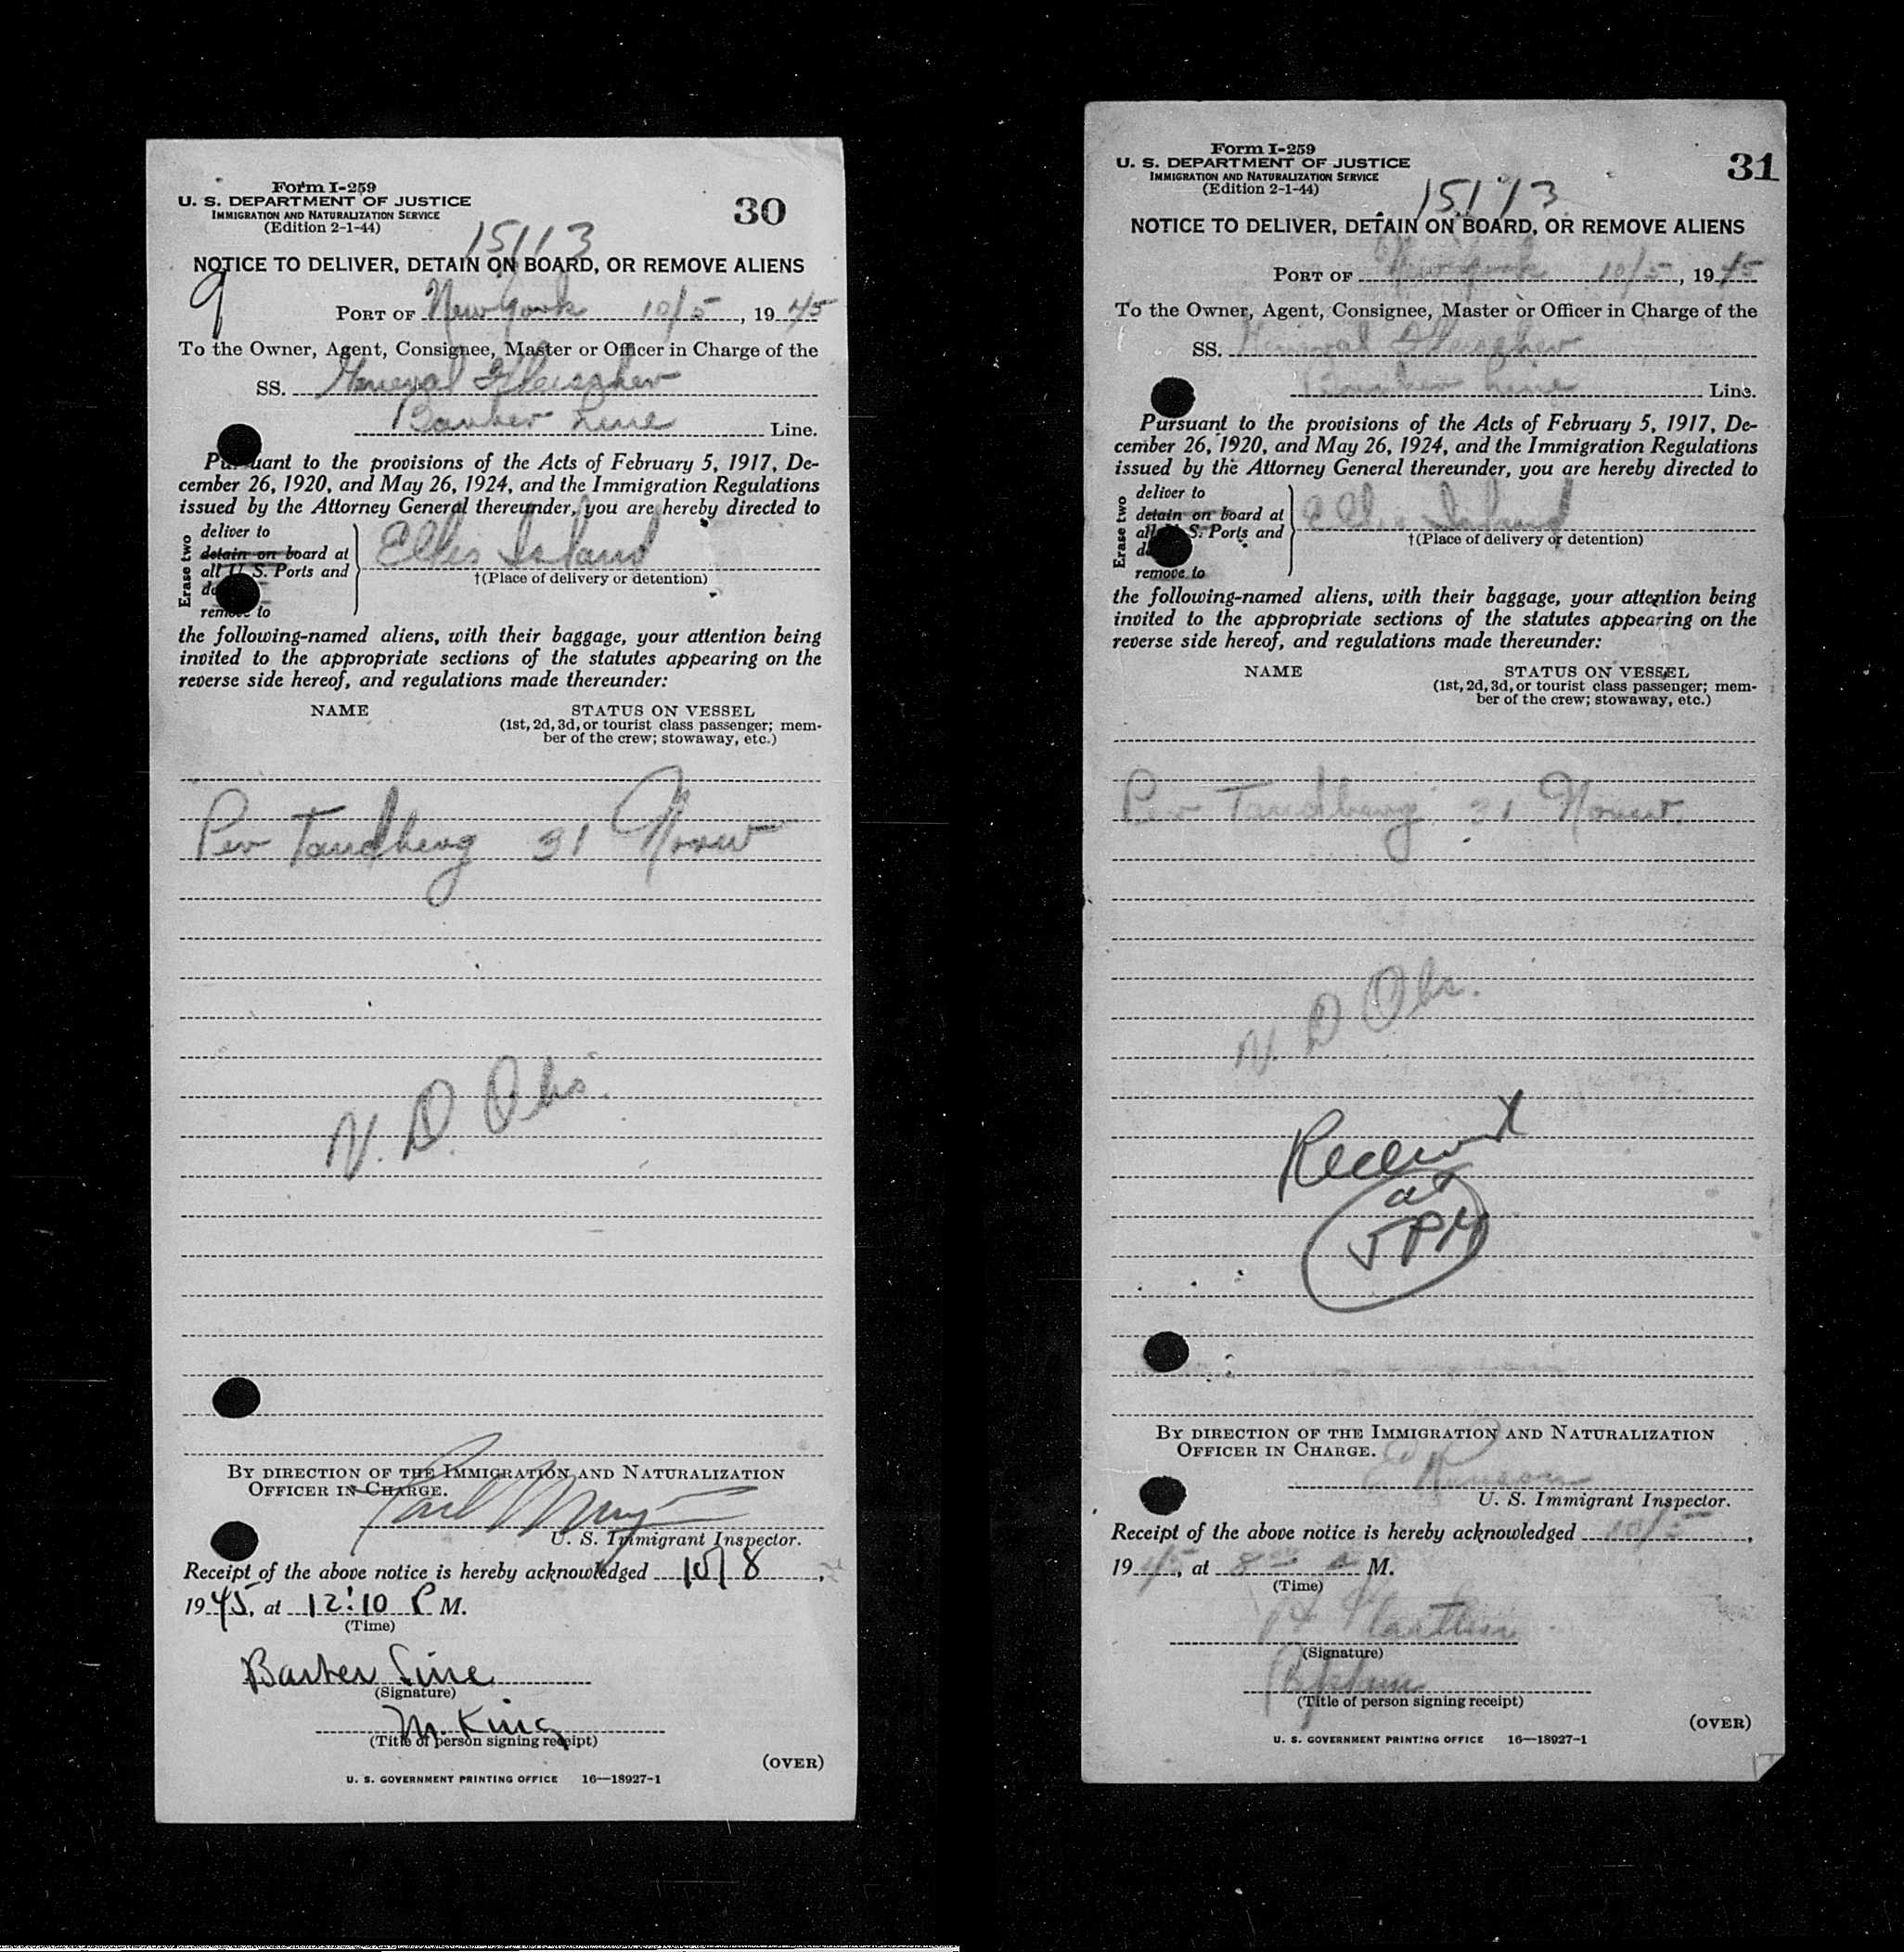 Form I-259
U. S. DEPARTMENT OF JUSTICE
IMMIGRATION AND NATURALIZATION SERVICE
(Edition 2-1-44)
30
15113
NOTICE TO DELIVER, DETAIN ON BOARD, OR REMOVE ALIENS
9
PORT OF New York 10/5, 1945
To the Owner, Agent, Consignee, Master or Officer in Charge of the
SS. General Fleischer
Barber Line Line.
Pursuant to the provisions of the Acts of February 5, 1917, De-
cember 26, 1920, and May 26, 1924, and the Immigration Regulations
issued by the Attorney General thereunder, you are hereby directed to
Erase two
deliver to
detain on board at
all U. S. Ports and
remove to
Ellis Island
†(Place of delivery or detention)
the following-named aliens, with their baggage, your attention being
invited to the appropriate sections of the statutes appearing on the
reverse side hereof, and regulations made thereunder:
NAME STATUS ON VESSEL
(1st, 2d, 3d, or tourist class passenger; mem-
ber of the crew; stowaway, etc.)
Per Tandberg 31 Norw
N. D. Obs.
BY DIRECTION OF THE IMMIGRATION AND NATURALIZATION
OFFICER IN CHARGE.
U. S. Immigrant Inspector.
Receipt of the above notice is hereby acknowledged 10/8,
1945, at 12:10 P M.
(Time)
Barber Line
(Signature)
M. King
(Title of person signing receipt)
(OVER)
U. S. GOVERNMENT PRINTING OFFICE 16—18927-1
Form I-259
U. S. DEPARTMENT OF JUSTICE
IMMIGRATION AND NATURALIZATION SERVICE
(Edition 2-1-44)
31
15113
NOTICE TO DELIVER, DETAIN ON BOARD, OR REMOVE ALIENS
PORT OF New York 10/5, 1945
To the Owner, Agent, Consignee, Master or Officer in Charge of the
SS. General Fleischer
Barber Line Line.
Pursuant to the provisions of the Acts of February 5, 1917, De-
cember 26, 1920, and May 26, 1924, and the Immigration Regulations
issued by the Attorney General thereunder, you are hereby directed to
Erase two
deliver to
detain on board at
all U. S. Ports and
remove to
Ellis Island
†(Place of delivery or detention)
the following-named aliens, with their baggage, your attention being
invited to the appropriate sections of the statutes appearing on the
reverse side hereof, and regulations made thereunder:
NAME STATUS ON VESSEL
(1st, 2d, 3d, or tourist class passenger; mem-
ber of the crew; stowaway, etc.)
Per Tandberg 31 Norw.
N. D Obs.
Received
at
5 PM
BY DIRECTION OF THE IMMIGRATION AND NATURALIZATION
OFFICER IN CHARGE.
U. S. Immigrant Inspector.
Receipt of the above notice is hereby acknowledged 10/5,
1945, at 8 M.
(Time)
(Signature)
(Title of person signing receipt)
(OVER)
U. S. GOVERNMENT PRINTING OFFICE 16—18927-1